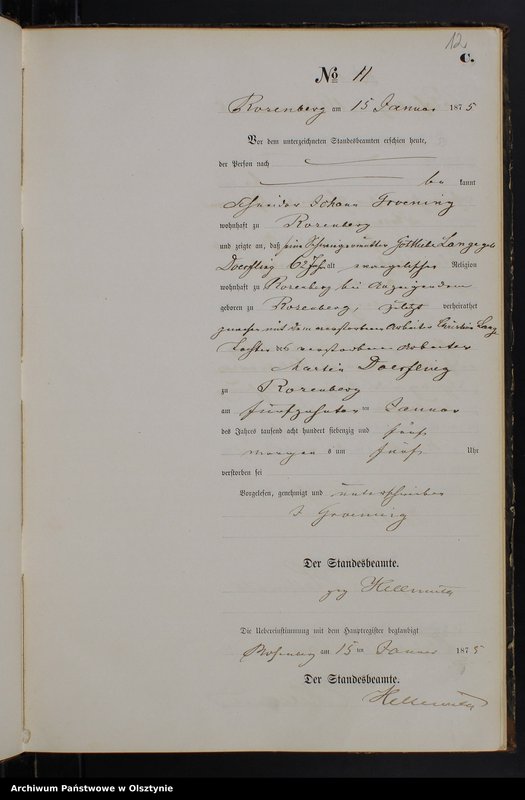 12
C.
No 11
Rosenberg am 15 Januar 1875
Vor dem unterzeichneten Standesbeamten erschien heute,
der Person nach
be kannt
Schneider Johann Groening
wohnhaft zu Rosenberg
und zeigte an, daß seine Schwiegermutter Lange geb
Doerfling 62 Jahr alt evangelischer Religion
wohnhaft zu Rosenberg bei Anzeigendem
geboren zu Rosenberg, zuletzt verheirathet
gewesen mit dem verstorbenen Arbeiter Christian Lange
Tochter des verstorbenen Arbeiter
Martin Doerfling
zu Rosenberg
am fünfzehnten ten Januar
des Jahres tausend acht hundert siebenzig und fünf
Morgens um fünf Uhr
verstorben sei
Vorgelesen, genehmigt und unterschrieben
J Groening
Der Standesbeamte.
gez Hellwich
Die Uebereinstimmung mit dem Hauptregister beglaubigt
Rosenberg am 15 ten Januar 1875
Der Standesbeamte.
Archiwum Państwowe w Olsztynie